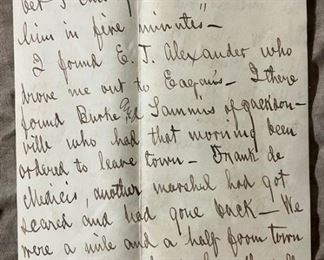 him in five minutes —
I found E. T. Alexander who
drove me out to Eagan's — I there
found Burke & Sammis of Jackson-
ville who had that morning been
ordered to leave town — Frank de
Medicis, another marshal had got
scared and had gone back — We
were a mile and a half from town